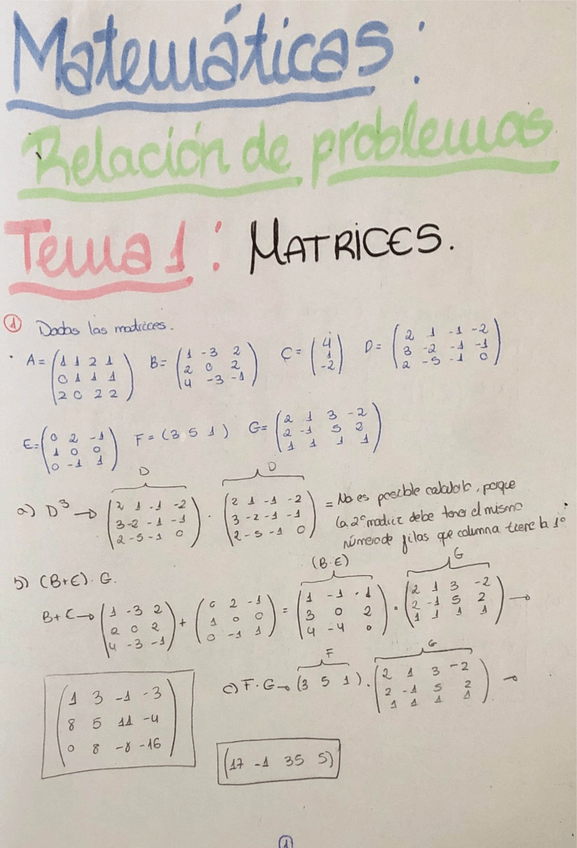 Matemáticas:
Relación de problemas
Tema 1: MATRICES.
① Dadas las matrices.
· A = (1 1 2 1 / 0 1 1 1 / 2 0 2 2) B = (1 -3 2 / 2 0 2 / 4 -3 -1) C = (4 / 1 / -2) D = (2 1 -1 -2 / 3 -2 -1 -1 / 2 -5 -1 0)
E = (0 2 -1 / 1 0 0 / 0 -1 1) F = (3 5 1) G = (2 1 3 -2 / 2 -1 5 2 / 1 1 1 1)
D D
a) D³ → (2 1 -1 -2 / 3 -2 -1 -1 / 2 -5 -1 0) · (2 1 -1 -2 / 3 -2 -1 -1 / 2 -5 -1 0) = No es posible calcularlo, porque
la 2ª matriz debe tener el mismo
número de filas que columna tiene la 1ª
b) (B+E)·G.
(B·E) G
B+E → (1 -3 2 / 2 0 2 / 4 -3 -1) + (0 2 -1 / 1 0 0 / 0 -1 1) = (1 -1 1 / 3 0 2 / 4 -4 0) · (2 1 3 -2 / 2 -1 5 2 / 1 1 1 1) →
F G
c) F·G → (3 5 1) · (2 1 3 -2 / 2 -1 5 2 / 1 1 1 1) →
(1 3 -1 -3 / 8 5 11 -4 / 0 8 -8 -16)
(17 -1 35 5)
1